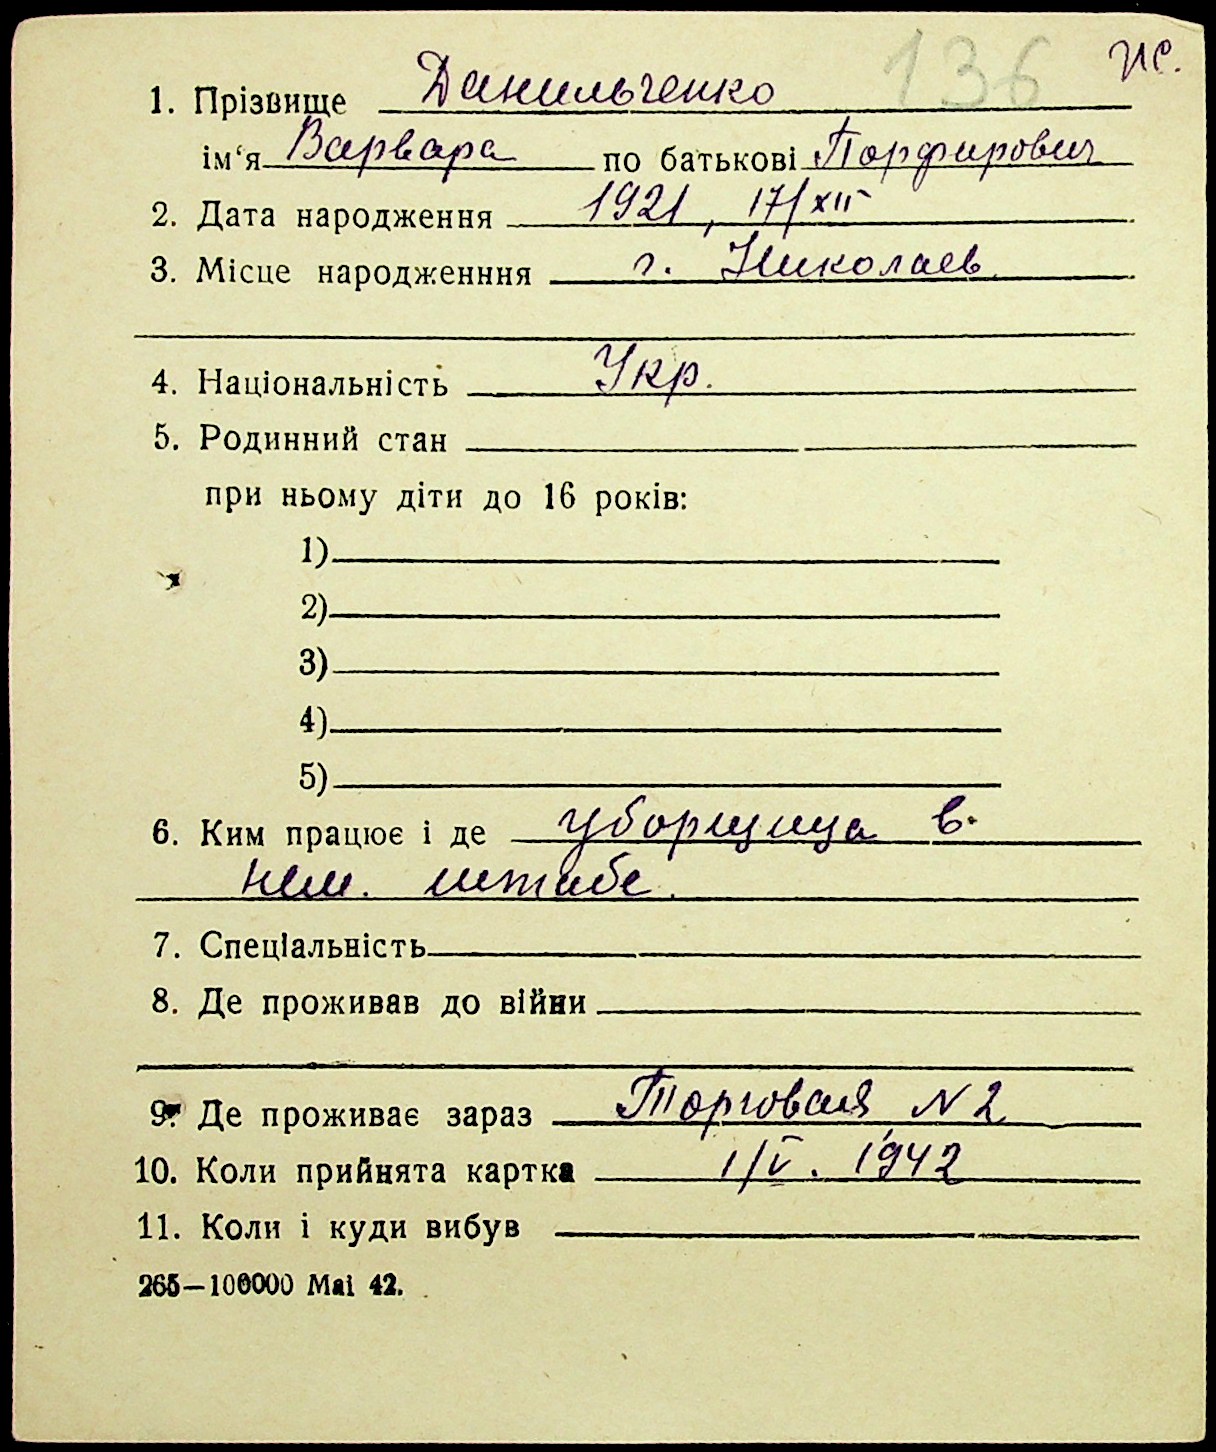 136 ж.
1. Прізвище Данильченко
ім‘я Варвара по батькові Порфирович
2. Дата народження 1921, 17/XII
3. Місце народженння г. Николаев
4. Національність Укр.
5. Родинний стан
при ньому діти до 16 років:
1)
2)
3)
4)
5)
6. Ким працює і де уборщица в
нем. штабе.
7. Спеціальність
8. Де проживав до війни
9. Де проживає зараз Торговая N 2
10. Коли прийнята картка 1/V. 1942
11. Коли і куди вибув
265—100000 Маі 42.